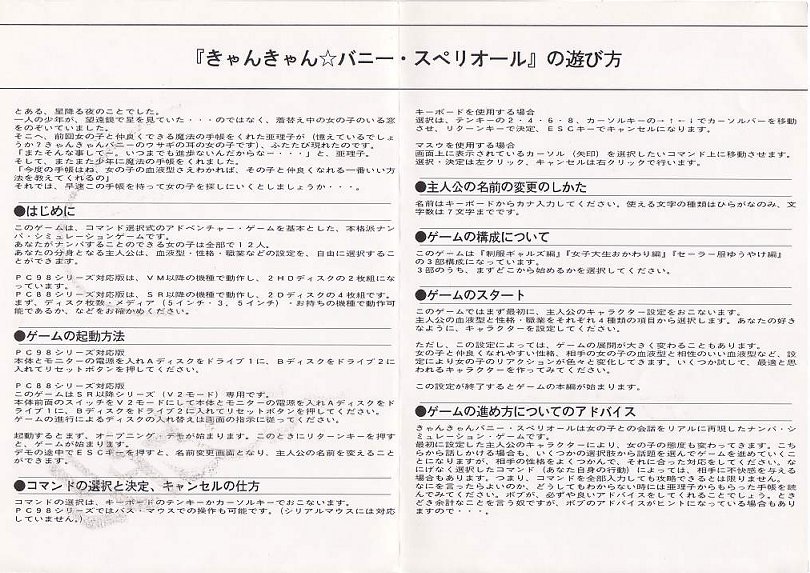 『きゃんきゃん☆バニー・スペリオール』の遊び方
とある、星降る夜のことでした。
一人の少年が、望遠鏡で星を見ていた・・・のではなく、着替え中の女の子のいる窓
をのぞいていました。
そこへ、前回女の子と仲良くできる魔法の手帳をくれた亜理子が（憶えているでしょ
うか？きゃんきゃんバニーのウサギの耳の女の子です）、ふたたび現れたのです。
「またそんな事して～。いつまでも進歩ないんだからな～・・・」と、亜理子。
そして、またまた少年に魔法の手帳をくれました。
「今度の手帳はね、女の子の血液型さえわかれば、その子と仲良くなれる一番いい方
法を教えてくれるの」
それでは、早速この手帳を持って女の子を探しにいくとしましょうか・・・。
●はじめに
このゲームは、コマンド選択式のアドベンチャー・ゲームを基本とした、本格派ナ
ンパ・シミュレーションゲームです。
あなたがナンパすることのできる女の子は全部で１２人。
あなたの分身となる主人公は、血液型・性格・職業などの設定を、自由に選択するこ
とができます。
ＰＣ９８シリーズ対応版は、ＶＭ以降の機種で動作し、２ＨＤディスクの２枚組にな
っています。
ＰＣ８８シリーズ対応版は、ＳＲ以降の機種で動作し、２Ｄディスクの４枚組です。
まず、ディスク枚数・メディア（５インチ・３．５インチ）・お持ちの機種で動作可
能であるか、などをお確かめください。
●ゲームの起動方法
ＰＣ９８シリーズ対応版
本体とモニターの電源を入れＡディスクをドライブ１に、Ｂディスクをドライブ２に
入れてリセットボタンを押してください。
ＰＣ８８シリーズ対応版
このゲームはＳＲ以降シリーズ（Ｖ２モード）専用です。
本体前面のスイッチをＶ２モードにして本体とモニターの電源を入れＡディスクをド
ライブ１に、Ｂディスクをドライブ２に入れてリセットボタンを押してください。
ゲームの進行によるディスクの入れ替えは画面の指示に従ってください。
起動するとまず、オープニング・デモが始まります。このときにリターンキーを押す
と、ゲームが始まります。
デモの途中でＥＳＣキーを押すと、名前変更画面となり、主人公の名前を変えること
ができます。
●コマンドの選択と決定、キャンセルの仕方
コマンドの選択は、キーボードのテンキーかカーソルキーでおこないます。
ＰＣ９８シリーズではバス・マウスでの操作も可能です。（シリアルマウスには対応
していません。）
キーボードを使用する場合
選択は、テンキーの２・４・６・８、カーソルキーの→↑←↓でカーソルバーを移動
させ、リターンキーで決定、ＥＳＣキーでキャンセルになります。
マスウを使用する場合
画面上に表示されているカーソル（矢印）を選択したいコマンド上に移動させます。
選択・決定は左クリック、キャンセルは右クリックで行います。
●主人公の名前の変更のしかた
名前はキーボードからカナ入力してください。使える文字の種類はひらがなのみ、文
字数は７文字までです。
●ゲームの構成について
このゲームは『制服ギャルズ編』『女子大生おかわり編』『セーラー服ゆうやけ編』
の３部構成になっています。
３部のうち、まずどこから始めるかを選択してください。
●ゲームのスタート
このゲームではまず最初に、主人公のキャラクター設定をおこないます。
主人公の血液型と性格・職業をそれぞれ４種類の項目から選択します。あなたの好き
なように、キャラクターを設定してください。
ただし、この設定によっては、ゲームの展開が大きく変わることもあります。
女の子と仲良くなれやすい性格、相手の女の子の血液型と相性のいい血液型など、設
定により女の子のリアクションが色々と変化してきます。いくつか試して、最適と思
われるキャラクターを作ってみてください。
この設定が終了するとゲームの本編が始まります。
●ゲームの進め方についてのアドバイス
きゃんきゃんバニー・スペリオールは女の子との会話をリアルに再現したナンパ・シ
ミュレーション・ゲームです。
最初に設定した主人公のキャラクターにより、女の子の態度も変わってきます。こち
らから話しかける場合も、いくつかの選択肢から話題を選んでゲームを進めていくこ
とになりますが、相手の性格をよくつかんで、それに合った対応をしてください。な
にげなく選択したコマンド（あなた自身の行動）によっては、相手に不快感を与える
場合もあります。つまり、コマンドを全部入力しても攻略できるとは限りません。
なにを言ったらよいのか、どうしてもわからない時には亜理子からもらった手帳を読
んでみてください。ボブが、必ずや良いアドバイスをしてくれることでしょう。とき
どき余計なことを言う奴ですが、ボブのアドバイスがヒントになっている場合もあり
ますので・・・。